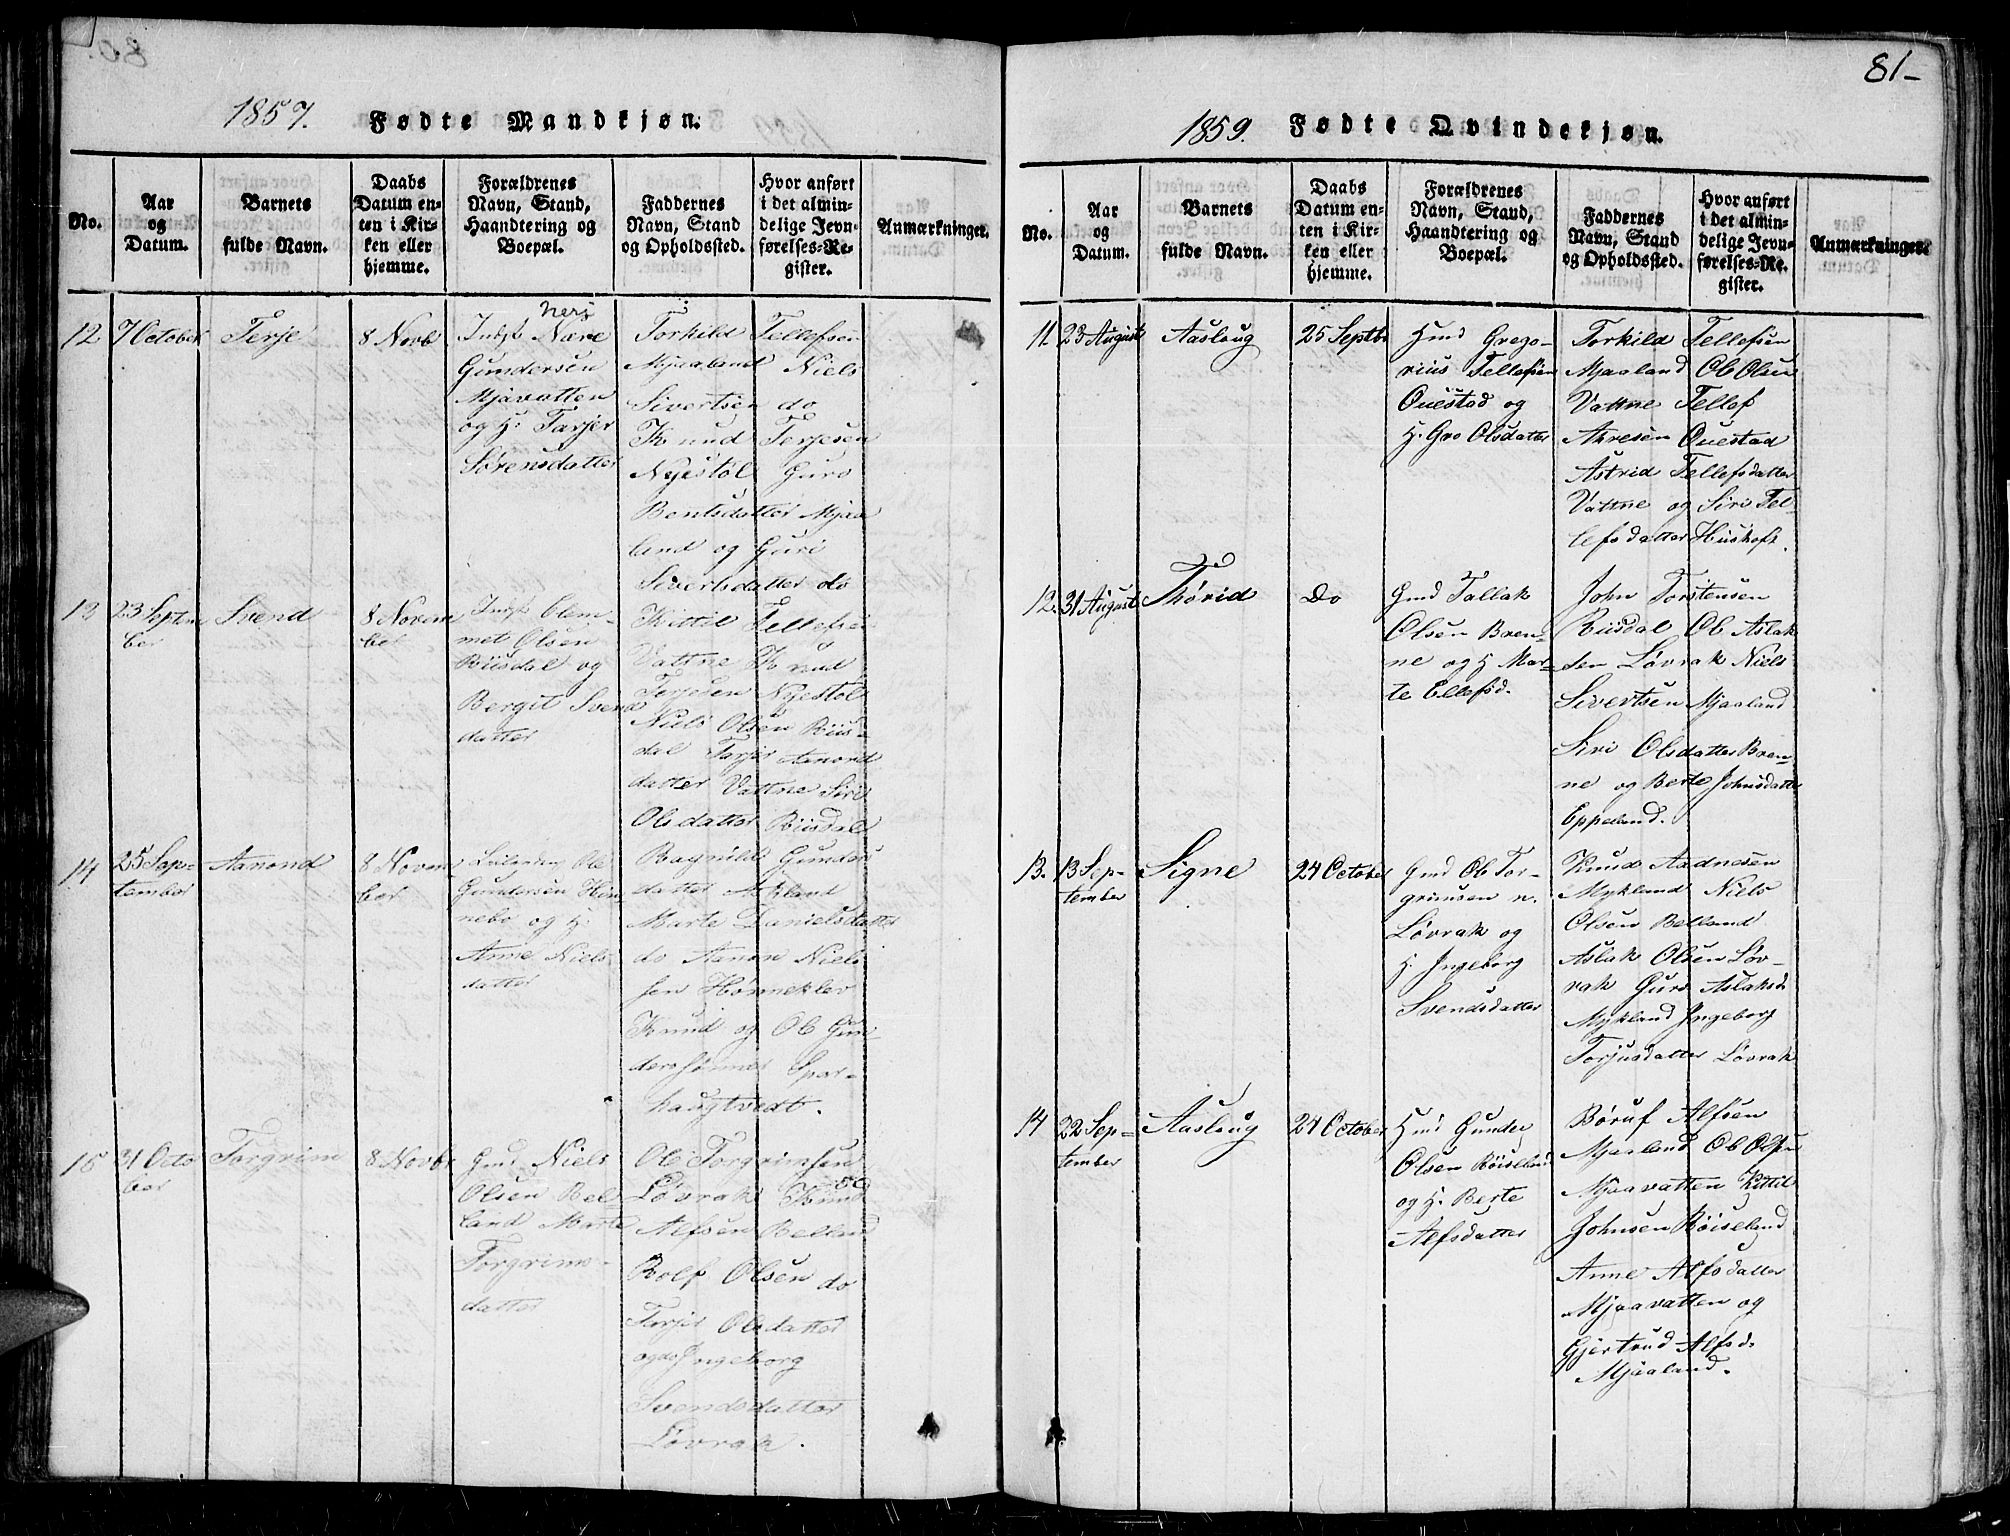 1857. Fødte Mandkjøn.
No.
Aar
og
Datum.
Barnets
fulde Navn.
Daabs
Datum en-
ten i Kir-
ken eller
hjemme.
Forældrenes
Navn, Stand,
Haandtering og
Boepæl.
Faddernes
Navn, Stand
og Opholdssted.
Hvor anført
i det almin-
delige Jevn-
førelses-Re-
gister.
Anmærkninger.
12
7 October
Terje
8 Novb
Indst Nære
Gundersen
Mjavatten
og H. Tarjer
Sørensdatter
Torkild Tellefsen
Mjaaland Niels
Sivertsen do
Knud Terjesen
Nyestøl Guro
Bentsdatter Mjaa
land og Guri
Sivertsdatter do
13
23 Septm
ber
Svend
8 Novem
ber
Indst Clem-
met Olsen
Riisdal og
Bergit Svend
datter
Kittil Tellefsen
Vattne Knud
Terjesen Nyestøl
Niels Olsen Riis-
dal Tarjer Aanond
datter Vattne Siri
Olsdatter Riisdal
14
25 Sep-
tember
Aanond
8 Novem
ber
Leilænding Ole
Gundersen Høn
nebo og H.
Anne Niels
datter
Ragnild Gunders
datter Askland
Marte Danielsdatter
do Aanon Niels
sen Hønneklev
Knud og Ole Gun
derssønner Spor-
haugtvedt.
15
31 Octo
ber
Torgrim
8 Novbr
Gmd Niels
Olsen Bel-
land Marte
Torgrims-
datter
Ole Torgrimsen
Løvrak Knud
Alfsen Belland
Rolf Olsen do
Tarjer Olsdatter
og do Ingeborg
Svendsdatter
Løvrak.
81-
1859. Fødte Qvindekjøn.
No.
Aar
og
Datum.
Barnets
fulde Navn.
Daabs
Datum en-
ten i Kir-
ken eller
hjemme.
Forældrenes
Navn, Stand,
Haandtering og
Boepæl.
Faddernes
Navn, Stand
og Opholdssted.
Hvor anført
i det almin-
delige Jevn-
førelses-Re-
gister.
Anmærkninger.
11.
23 August
Aasloug
25 Septbr
Hmd Grego-
rius Tellefsen
Ouestad og
H. Gro Olsdatter
Torkild Tellefsen
Mjaaland Ole Olsen
Vattne Tellef
Akresen Ouestad
Astrid Tellefsdatter
Vattne og Siri Tel-
lefsdatter Huskoft.
12.
31 August
Thorid
Do
Gmd Tallak
Olsen Bren-
ne og H Mar-
te Ellefsd.
John Torstensen
Riisdal Ole Aslak
sen Løvrak Niels
Sivertsen Mjaaland
Siri Olsdatter Bren-
ne og Berte Johnsdatter
Eppeland.
13.
13 Sep-
tember
Signe
24 October
Gmd Ole Tor-
grimsen n.
Løvrak og
H. Ingeborg
Svendsdatter
Knud Aadnesen
Mykland Niels
Olsen Belland
Aslak Olsen Løv-
rak Guro Aslaksd.
Mykland Ingeborg
Torjusdatter Løvrak
14
22 Sep-
tember
Aasloug
24 October
Hmd Gunder
Olsen Røiseland
og H. Berte
Alfsdatter
Børuf Alfsen
Mjaaland Ole Olsen
Mjaavatten Kittil
Johnsen Røiseland
Anne Alfsdatter
Mjaavatten og
Gjertrud Alfsd.
Mjaaland.